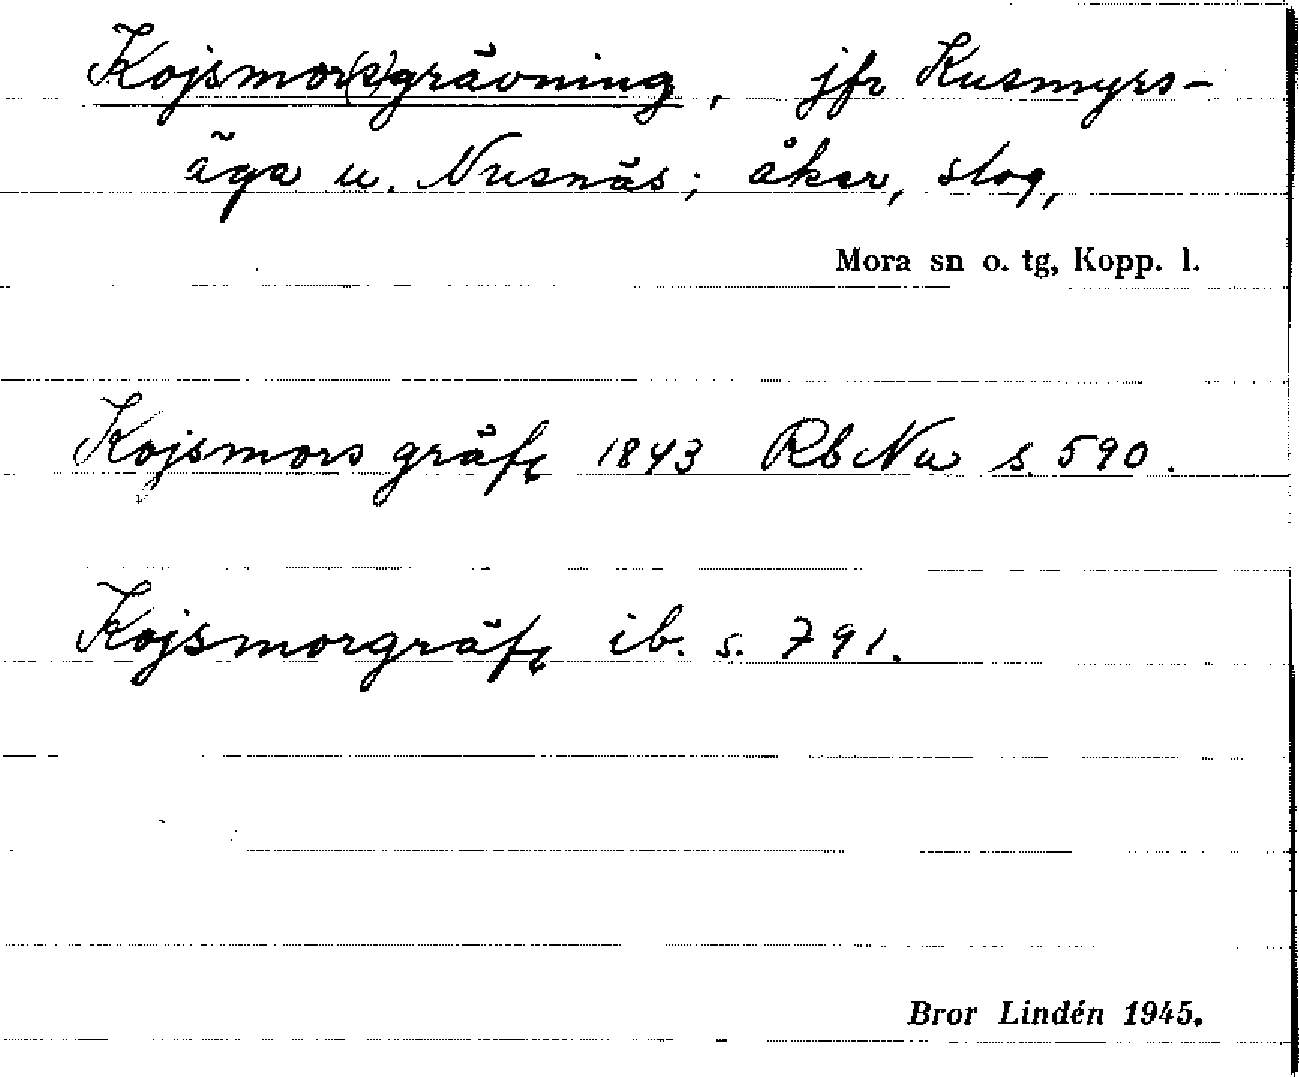 Kojsmor(s)grävning, jfr Kusmyrs-
äga u. Nusnäs; åker, slog,
Mora sn o. tg, Kopp. l.
Kojsmors gräfg 1843 RbNu s. 590.
Kojsmorgräfg ib. s. 791.
Bror Lindén 1945.